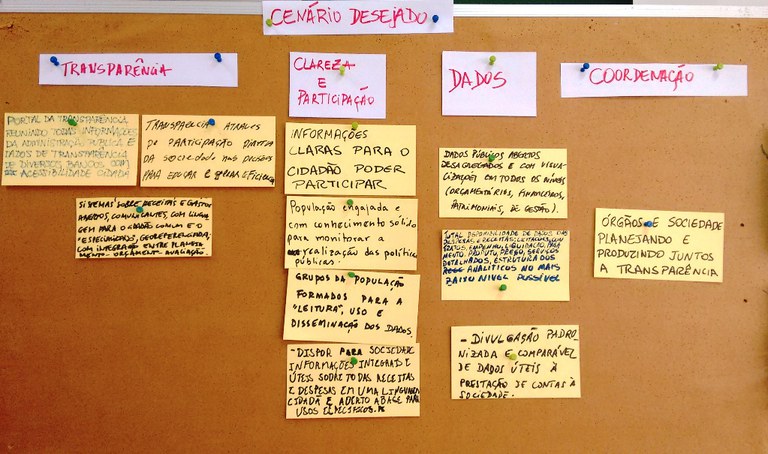 CENÁRIO DESEJADO
TRANSPARÊNCIA
PORTAL DA TRANSPARÊNCIA
REUNINDO TODAS INFORMAÇÕES
DA ADMINISTRAÇÃO PÚBLICA E
DADOS DE TRANSPARÊNCIA
DE DIVERSOS BANCOS, COM
ACESSIBILIDADE CIDADÃ
TRANSPARENCIA ATRAVES
DE PARTICIPAÇÃO DIRETA
DA SOCIEDADE NOS
PARA E GERAR EFICIENCIA
SISTEMAS SOBRE RECEITAS E GASTOS
ABERTOS, COMUNICANTES, COM LINGUA
GEM PARA O CIDADÃO COMUM E O
"ESPECIALIZADO", GEOREFERENCIADA,
COM INTEGRAÇÃO ENTRE PLANEJA
MENTO - ORÇAMENTO - AVALIAÇÃO.
CLAREZA
E
PARTICIPAÇÃO
INFORMAÇÕES
CLARAS PARA O
CIDADÃO PODER
PARTICIPAR
População engajada e
com conhecimento sólido
para monitorar a
realização das políticas
públicas.
GRUPOS DA POPULAÇÃO
FORMADOS PARA A
"LEITURA", USO E
DISSEMINAÇÃO DOS DADOS.
- DISPOR PARA SOCIEDADE
INFORMAÇÕES INTEGRAIS E
ÚTEIS SOBRE TODAS RECEITAS
E DESPESAS EM UMA LINGUAGEM
CIDADÃ E ABERTO A BASE PARA
USOS ESPECÍFICOS.
DADOS
DADOS PÚBLICOS ABERTOS
DESAGREGADOS E COM VISUA
LIZAÇÕES EM TODOS OS NÍVEIS
(ORÇAMENTÁRIOS, FINANCEIROS,
PATRIMONIAIS, DE GESTÃO).
TOTAL DISPONIBILIDADE DE DADOS DAS
DESPESAS E RECEITAS: LICITAÇÕES, CON
TRATOS, EMPENHO, LIQUIDAÇÃO, PAGA
MENTO, PRODUTO, PREÇO, SERVIÇOS
DETALHADOS, ESTRUTURA DOS
ANALÍTICOS NO MAIS
BAIXO NIVEL POSSÍVEL
- DIVULGAÇÃO PADRO
NIZADA E COMPARÁVEL
DE DADOS ÚTEIS À
PRESTAÇÃO DE CONTAS À
SOCIEDADE.
COORDENAÇÃO
ÓRGÃOS E SOCIEDADE
PLANEJANDO E
PRODUZINDO JUNTOS
A TRANSPARÊNCIA